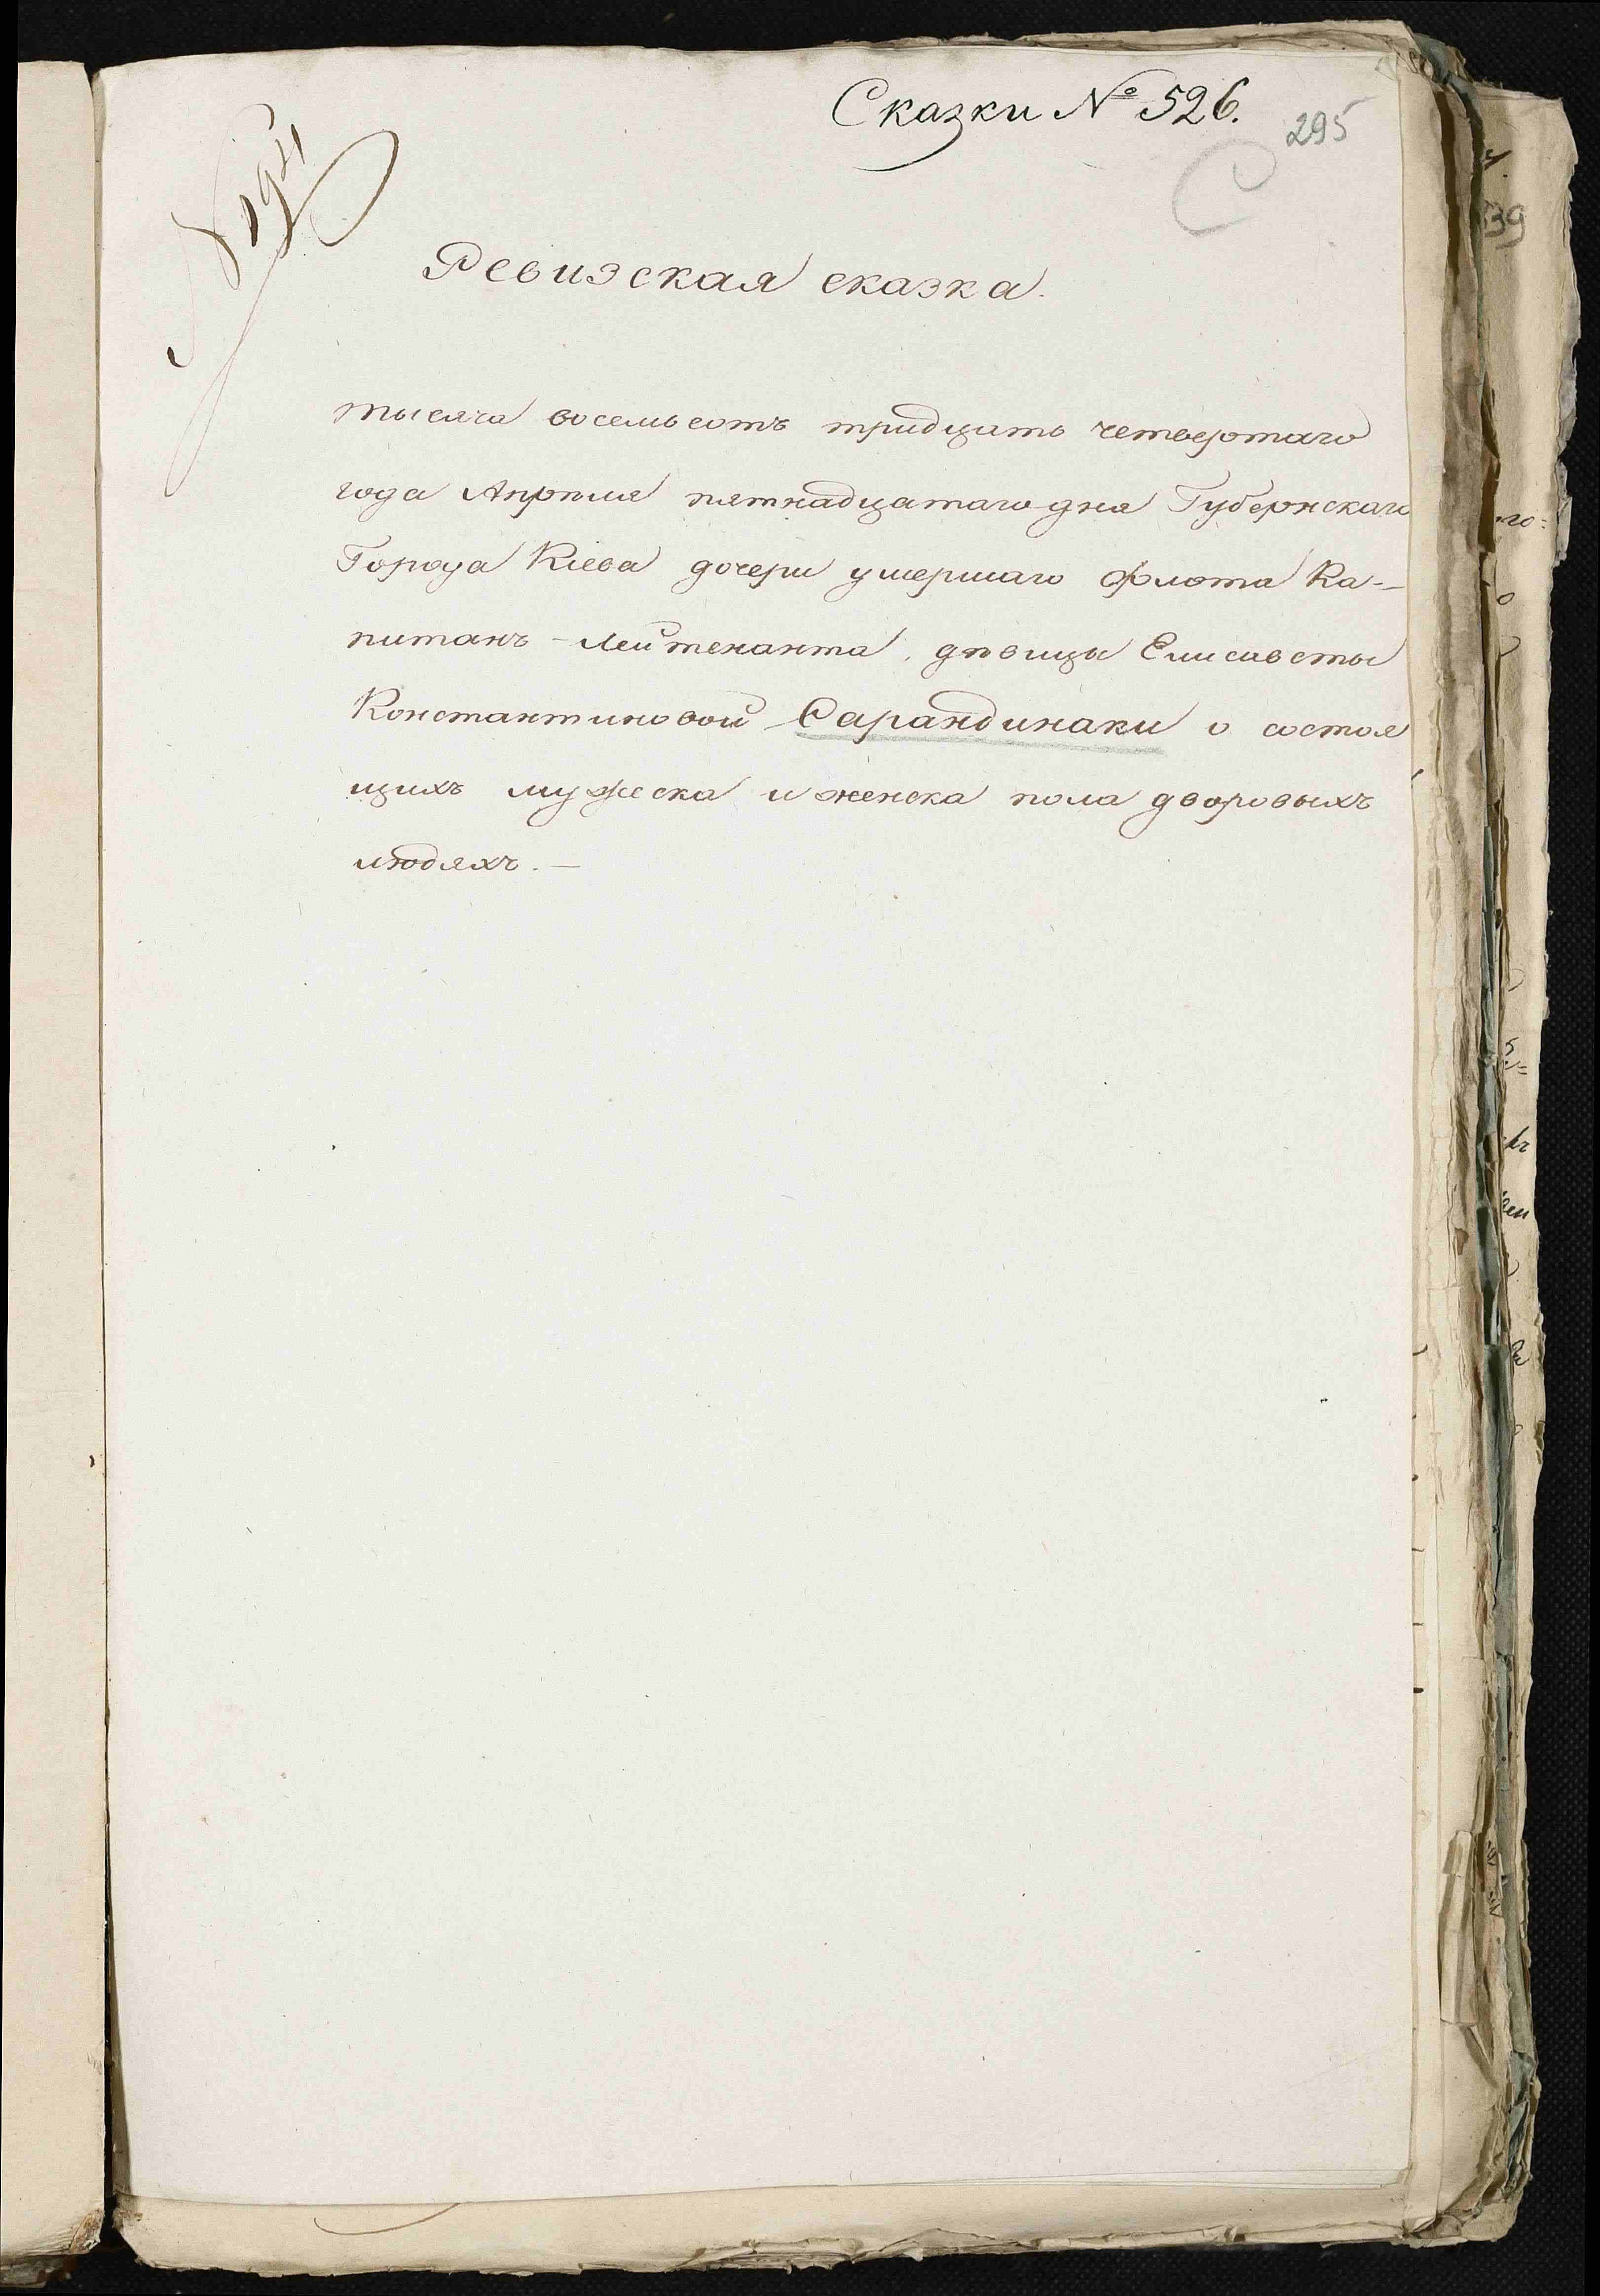 Сказки № 526.
295
С
Ревизская сказка.
тысяча восемьсотъ тридцать четвертаго
года Апрѣля пятнадцатаго дня Губернскаго
Города Кіева дочери умершаго флота Ка-
питанъ-Лейтенанта, дѣвицы Елисаветы
Константиновой Сарандинаки о состоя
щихъ мужеска и женска пола дворовыхъ
людяхъ. —
39